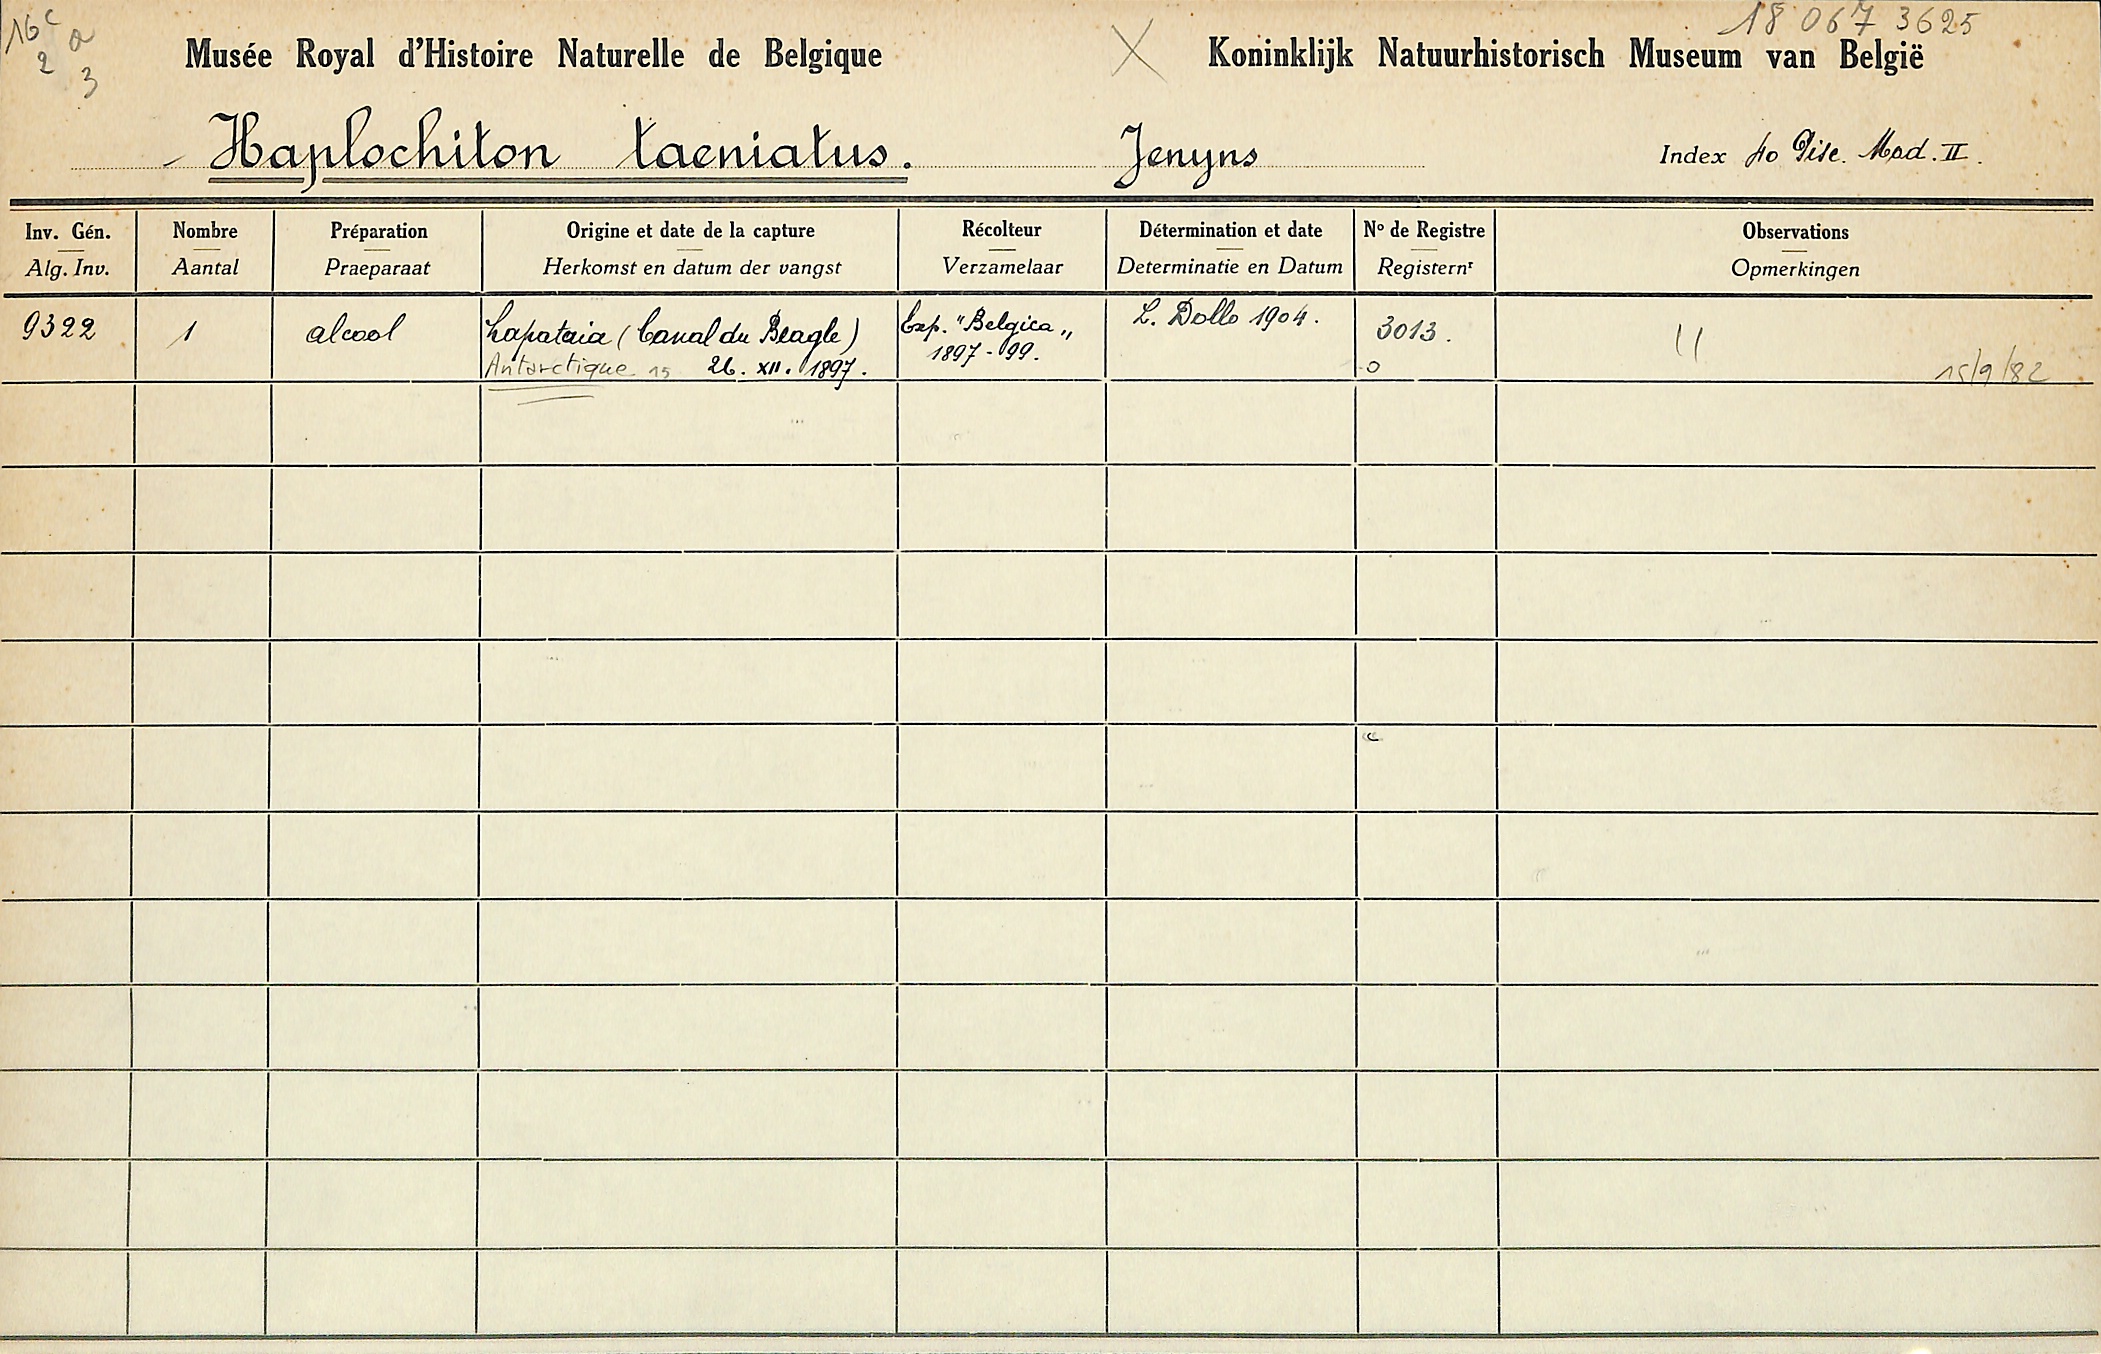 16c a
2 3
18 067 3625
Musée Royal d'Histoire Naturelle de Belgique X Koninklijk Natuurhistorisch Museum van België
Haplochiton taeniatus. Jenyns Index Ho Pisc. Mad. II.
Inv. Gén. Nombre Préparation Origine et date de la capture Récolteur Détermination et date No de Registre Observations
Alg. Inv. Aantal Praeparaat Herkomst en datum der vangst Verzamelaar Determinatie en Datum Registernr Opmerkingen
9322 1 alcool Lapataia (Canal du Beagle) Exp. "Belgica" L. Dollo 1904. 3013.
Antarctique 15 26. XII. 1897. 1897-99. 15/9/82